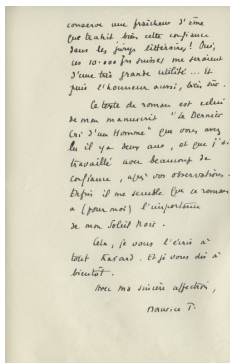 conserve une fraîcheur d'âme
que trahit bien cette confiance
dans les jurys littéraires ! Oui,
ces 10.000 frs suisses me seraient
d'une très grande utilité... Et
puis l'honneur aussi, bien sûr.
Ce texte de roman est celui
de mon manuscrit "Le Dernier
Cri d'un Homme" que vous avez
lu il y a deux ans, et que j'ai
travaillé avec beaucoup de
confiance, après vos observations.
Enfin il me semble que ce roman
a (pour moi) l'importance
de mon Soleil Noir.
Cela, je vous l'écris à
tout hasard. Et je vous dis à
bientôt.
Avec ma sincère affection,
Maurice P.